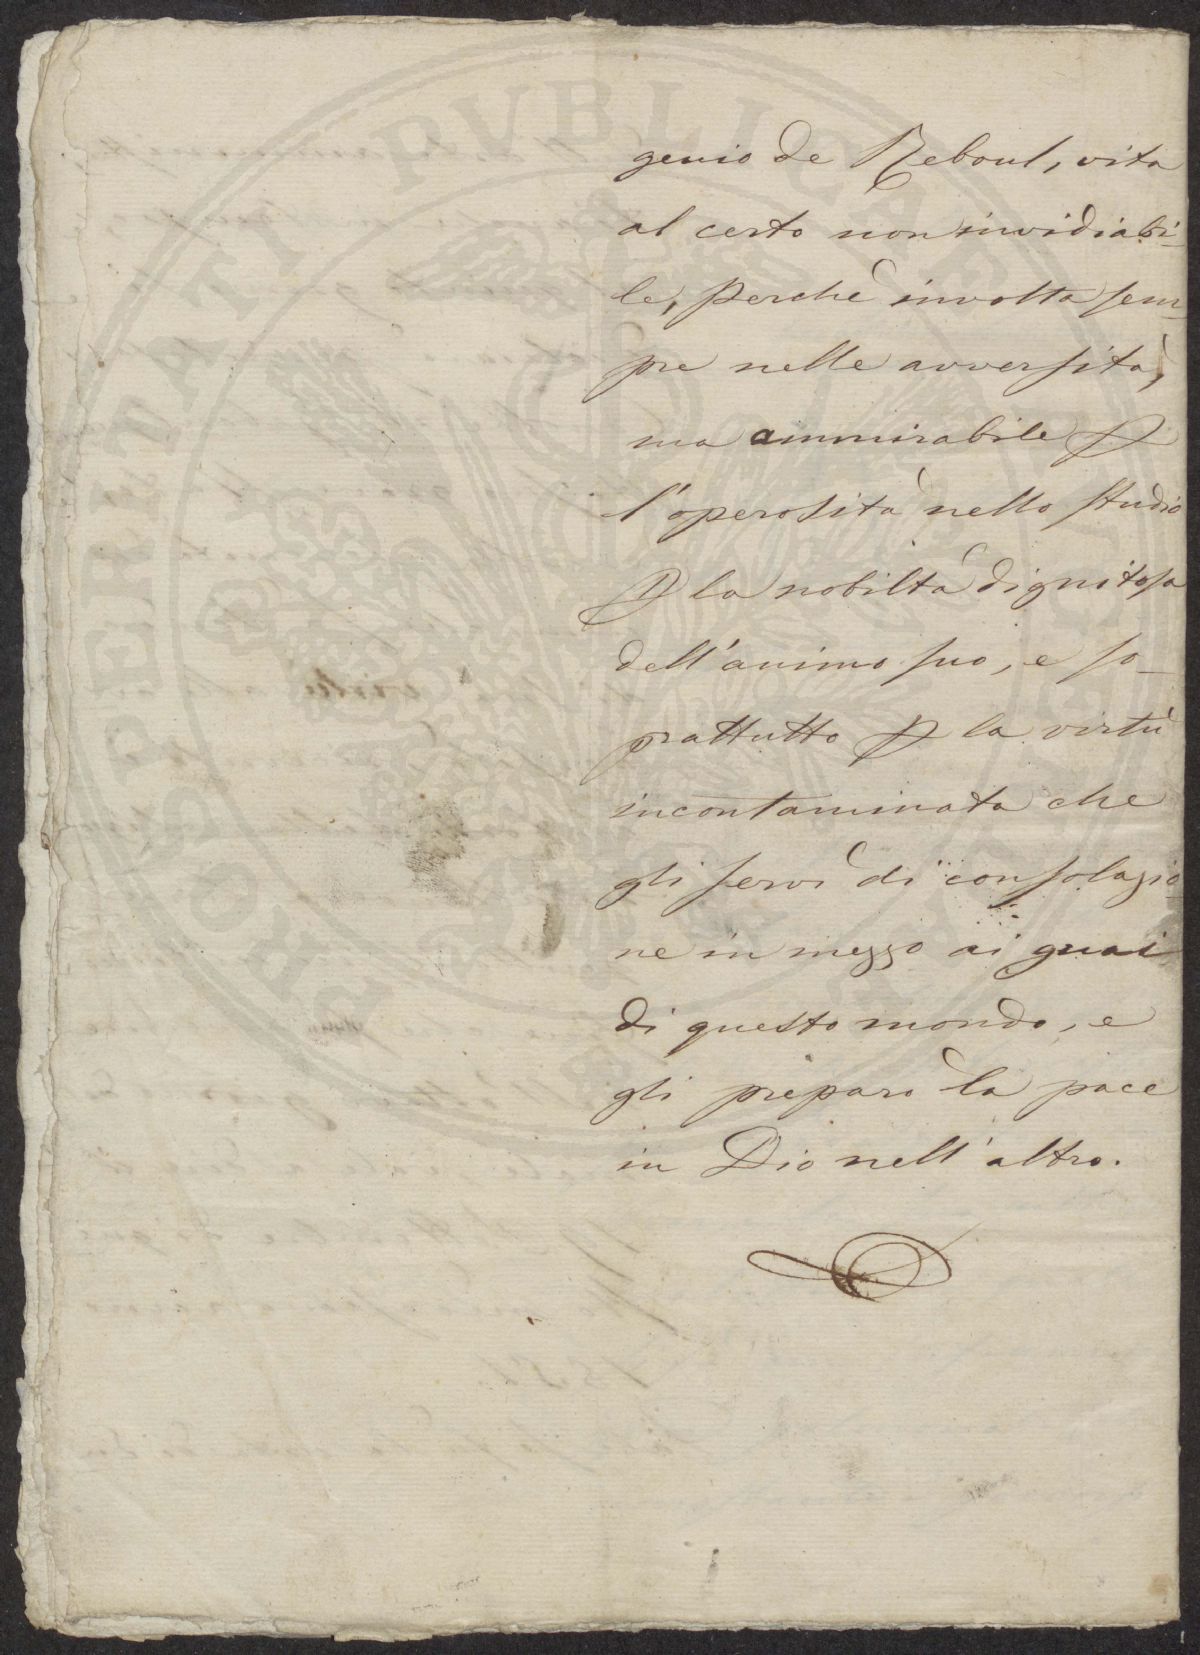 genio de Reboul, vita
al certo non invidiabi-
le, perchè involta sem-
pre nelle avversità,
ma ammirabile p
l'operosità nello studio
p la nobiltà dignitosa
dell'animo suo, e so-
prattutto p la virtù
incontaminata che
gli servì di consolazio
ne in mezzo ai guai
di questo mondo, e
gli preparò la pace
in Dio nell'altro.